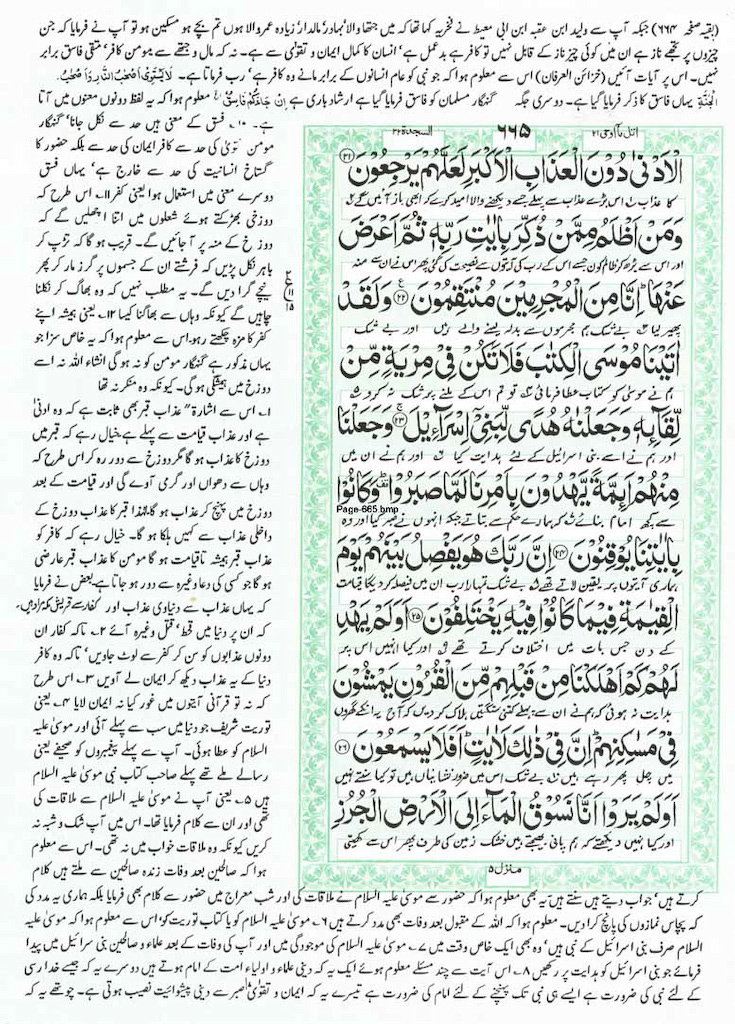 (بقیہ صفحہ ۶۶۴) جبکہ آپ سے ولید ابن عقبہ ابن ابی معیط نے فخریہ کہا تھا کہ میں جتھا والا' بہادر' مالدار' زیادہ عمر والا ہوں تم بچے ہو مسکین ہو تو آپ نے فرمایا کہ جن
چیزوں پر تجھے ناز ہے ان میں کوئی چیز ناز کے قابل نہیں تو کافر ہے بدعمل ہے' انسان کا کمال ایمان و تقوٰی سے ہے۔ نہ کہ مال و جتھے سے مومن کافر' متقی فاسق برابر
نہیں۔ اس پر آیات آئیں (خزائن العرفان) اس سے معلوم ہوا کہ جو نبی کو عام انسانوں کے برابر مانے وہ کافر ہے' رب فرماتا ہے۔ لَا یَسْتَوِیْۤ اَصْحٰبُ النَّارِ وَ اَصْحٰبُ
الْجَنَّةِ یہاں فاسق کا ذکر فرمایا گیا ہے۔ دوسری جگہ گنہگار مسلمان کو فاسق فرمایا گیا ہے ارشاد باری ہے اِنْ جَآءَكُمْ فَاسِقٌ معلوم ہوا کہ یہ لفظ دونوں معنوں میں آتا
ہے۔ ۱۰۔ فسق کے معنی ہیں حد سے نکل جانا' گنہگار
مومن تقوٰی کی حد سے کافر ایمان کی حد سے بلکہ حضور کا
گستاخ انسانیت کی حد سے خارج ہے' یہاں فسق
دوسرے معنی میں استعمال ہوا یعنی کفر ۱۱۔ اس طرح کہ
دوزخی بھڑکتے ہوئے شعلوں میں اتنا اچھلیں گے کہ
دوزخ کے منہ پر آ جائیں گے۔ قریب ہو گا کہ تڑپ کر
باہر نکل پڑیں کہ فرشتے ان کے جسموں پر گرز مار کر پھر
نیچے گرا دیں گے۔ یہ مطلب نہیں کہ وہ بھاگ کر نکلنا
چاہیں گے کیونکہ وہاں سے بھاگنا کیسا ۱۲۔ یعنی ہمیشہ اپنے
کفر کا مزہ چکھتے رہو۔ اس سے معلوم ہوا کہ یہ خاص سزا جو
یہاں مذکور ہے گنہگار مومن کو نہ ہو گی انشاء اللہ نہ اسے
دوزخ میں ہمیشگی ہو گی۔ کیونکہ وہ منکر نہ تھا
۱۔ اس سے اشارۃً عذاب قبر بھی ثابت ہے کہ وہ ادنٰی
ہے اور عذاب قیامت سے پہلے ہے خیال رہے کہ قبر میں
دوزخ کا عذاب ہو گا مگر دوزخ سے دور رہ کر اس طرح کہ
وہاں سے دھواں اور گرمی آوے گی اور قیامت کے بعد
دوزخ میں پہنچ کر عذاب ہو گا۔ لہٰذا قبر کا عذاب دوزخ کے
داخلی عذاب سے کہیں ہلکا ہو گا۔ خیال رہے کہ کافر کو
عذاب قبر ہمیشہ تاقیامت ہو گا مومن کا عذاب قبر عارضی
ہو گا جو کسی کی دعا وغیرہ سے دور ہو جاتا ہے بعض نے فرمایا
کہ یہاں عذاب سے دنیاوی عذاب اور کفار سے قریش مکہ مراد ہیں۔
کہ ان پر دنیا میں قحط' قتل وغیرہ آئے ۲۔ تاکہ کفار ان
دونوں عذابوں کو سن کر کفر سے لوٹ جاویں' تاکہ وہ کافر
دنیا کے یہ عذاب دیکھ کر ایمان لے آویں ۳۔ اس طرح
کہ نہ تو قرآنی آیتوں میں غور کیا نہ ایمان لایا ۴۔ یعنی
توریت شریف جو دنیا میں سب سے پہلے آئی اور موسٰی علیہ
السلام کو عطا ہوئی۔ آپ سے پہلے پیغمبروں کو صحیفے یعنی
رسالے ملے تھے پہلے صاحب کتاب نبی موسٰی علیہ السلام
ہیں ۵۔ یعنی آپ نے موسٰی علیہ السلام سے ملاقات کی
تھی اور ان سے کلام فرمایا تھا۔ اس میں آپ شک و شبہ نہ
کریں کیونکہ وہ ملاقات خواب میں نہ تھی۔ اس سے معلوم
ہوا کہ صالحین بعد وفات زندہ صالحین سے ملتے ہیں کلام
۲
۱۱
۱۵
اتل ما اوحی ۲۱
۶۶۵
السجدۃ ۳۲
الْاَدْنٰى دُوْنَ الْعَذَابِ الْاَكْبَرِ لَعَلَّهُمْ یَرْجِعُوْنَ ۲۱
کا عذاب اس بڑے عذاب سے پہلے جسے دیکھنے والا امید کرے کہ ابھی باز آئیں گے ۲
وَ مَنْ اَظْلَمُ مِمَّنْ ذُكِّرَ بِاٰیٰتِ رَبِّهٖ ثُمَّ اَعْرَضَ
اور اس سے بڑھ کر ظالم کون جسے اس کے رب کی آیتوں سے نصیحت کی گئی پھر اس نے ان سے منہ
عَنْهَا اِنَّا مِنَ الْمُجْرِمِیْنَ مُنْتَقِمُوْنَ ۲۲ وَ لَقَدْ
پھیر لیا بے شک ہم مجرموں سے بدلہ لینے والے ہیں اور بے شک
اٰتَیْنَا مُوْسَى الْكِتٰبَ فَلَا تَكُنْ فِیْ مِرْیَةٍ مِّنْ
ہم نے موسیٰ کو کتاب عطا فرمائی ۴ تو تم اس کے ملنے پر شک نہ کرو ۵
لِّقَآىٕهٖ وَ جَعَلْنٰهُ هُدًى لِّبَنِیْۤ اِسْرَآءِیْلَ ۲۳ وَ جَعَلْنَا
اور ہم نے اسے بنی اسرائیل کے لئے ہدایت کیا اور ہم نے ان میں
مِنْهُمْ اَىٕمَّةً یَّهْدُوْنَ بِاَمْرِنَا لَمَّا صَبَرُوْا وَ كَانُوْا
سے کچھ امام بنائے کہ ہمارے حکم سے بتاتے جبکہ انہوں نے صبر کیا اور وہ
Page-665.bmp
بِاٰیٰتِنَا یُوْقِنُوْنَ ۲۴ اِنَّ رَبَّكَ هُوَ یَفْصِلُ بَیْنَهُمْ یَوْمَ
ہماری آیتوں پر یقین لاتے تھے بے شک تمہارا رب ان میں فیصلہ کر دیگا قیامت
الْقِیٰمَةِ فِیْمَا كَانُوْا فِیْهِ یَخْتَلِفُوْنَ ۲۵ اَوَ لَمْ یَهْدِ
کے دن جس بات میں اختلاف کرتے تھے اور کیا انہیں اس پر
لَهُمْ كَمْ اَهْلَكْنَا مِنْ قَبْلِهِمْ مِّنَ الْقُرُوْنِ یَمْشُوْنَ
ہدایت نہ ہوئی کہ ہم نے ان سے پہلے کتنی سنگتیں ہلاک کر دیں کہ آج یہ انکے گھروں
فِیْ مَسٰكِنِهِمْ اِنَّ فِیْ ذٰلِكَ لَاٰیٰتٍ اَفَلَا یَسْمَعُوْنَ ۲۶
میں چل پھر رہے ہیں بے شک اس میں ضرور نشانیاں ہیں تو کیا سنتے نہیں
اَوَ لَمْ یَرَوْا اَنَّا نَسُوْقُ الْمَآءَ اِلَى الْاَرْضِ الْجُرُزِ
اور کیا نہیں دیکھتے کہ ہم پانی بھیجتے ہیں خشک زمین کی طرف پھر اس سے کھیتی
منزل ۵
کرتے ہیں' جواب دیتے ہیں سنتے ہیں یہ بھی معلوم ہوا کہ حضور سے موسٰی علیہ السلام نے ملاقات کی اور شب معراج میں حضور سے کلام بھی فرمایا بلکہ ہماری یہ مدد کی
کہ پچاس نمازوں کی پانچ کرا دیں۔ معلوم ہوا کہ اللہ کے مقبول بعد وفات بھی مدد کرتے ہیں ۶۔ موسٰی علیہ السلام کو یا کتاب توریت کو' اس سے معلوم ہوا کہ موسٰی علیہ
السلام صرف بنی اسرائیل کے نبی ہیں' وہ بھی ایک خاص وقت میں ۷۔ موسٰی علیہ السلام کی موجودگی میں اور آپ کی وفات کے بعد علماء و صالحین بنی اسرائیل میں پیدا
فرمائے جو بنی اسرائیل کو ہدایت پر رکھیں ۸۔ اس آیت سے چند مسئلے معلوم ہوئے ایک یہ کہ دینی علماء و اولیاء امت کے امام ہوتے ہیں دوسرے یہ کہ جیسے خدا رسی
کے لئے نبی کی ضرورت ہے ایسے ہی نبی تک پہنچنے کے لئے امام کی ضرورت ہے تیسرے یہ کہ ایمان و تقوٰی صبر سے دینی پیشوائیت نصیب ہوتی ہے۔ چوتھے یہ کہ